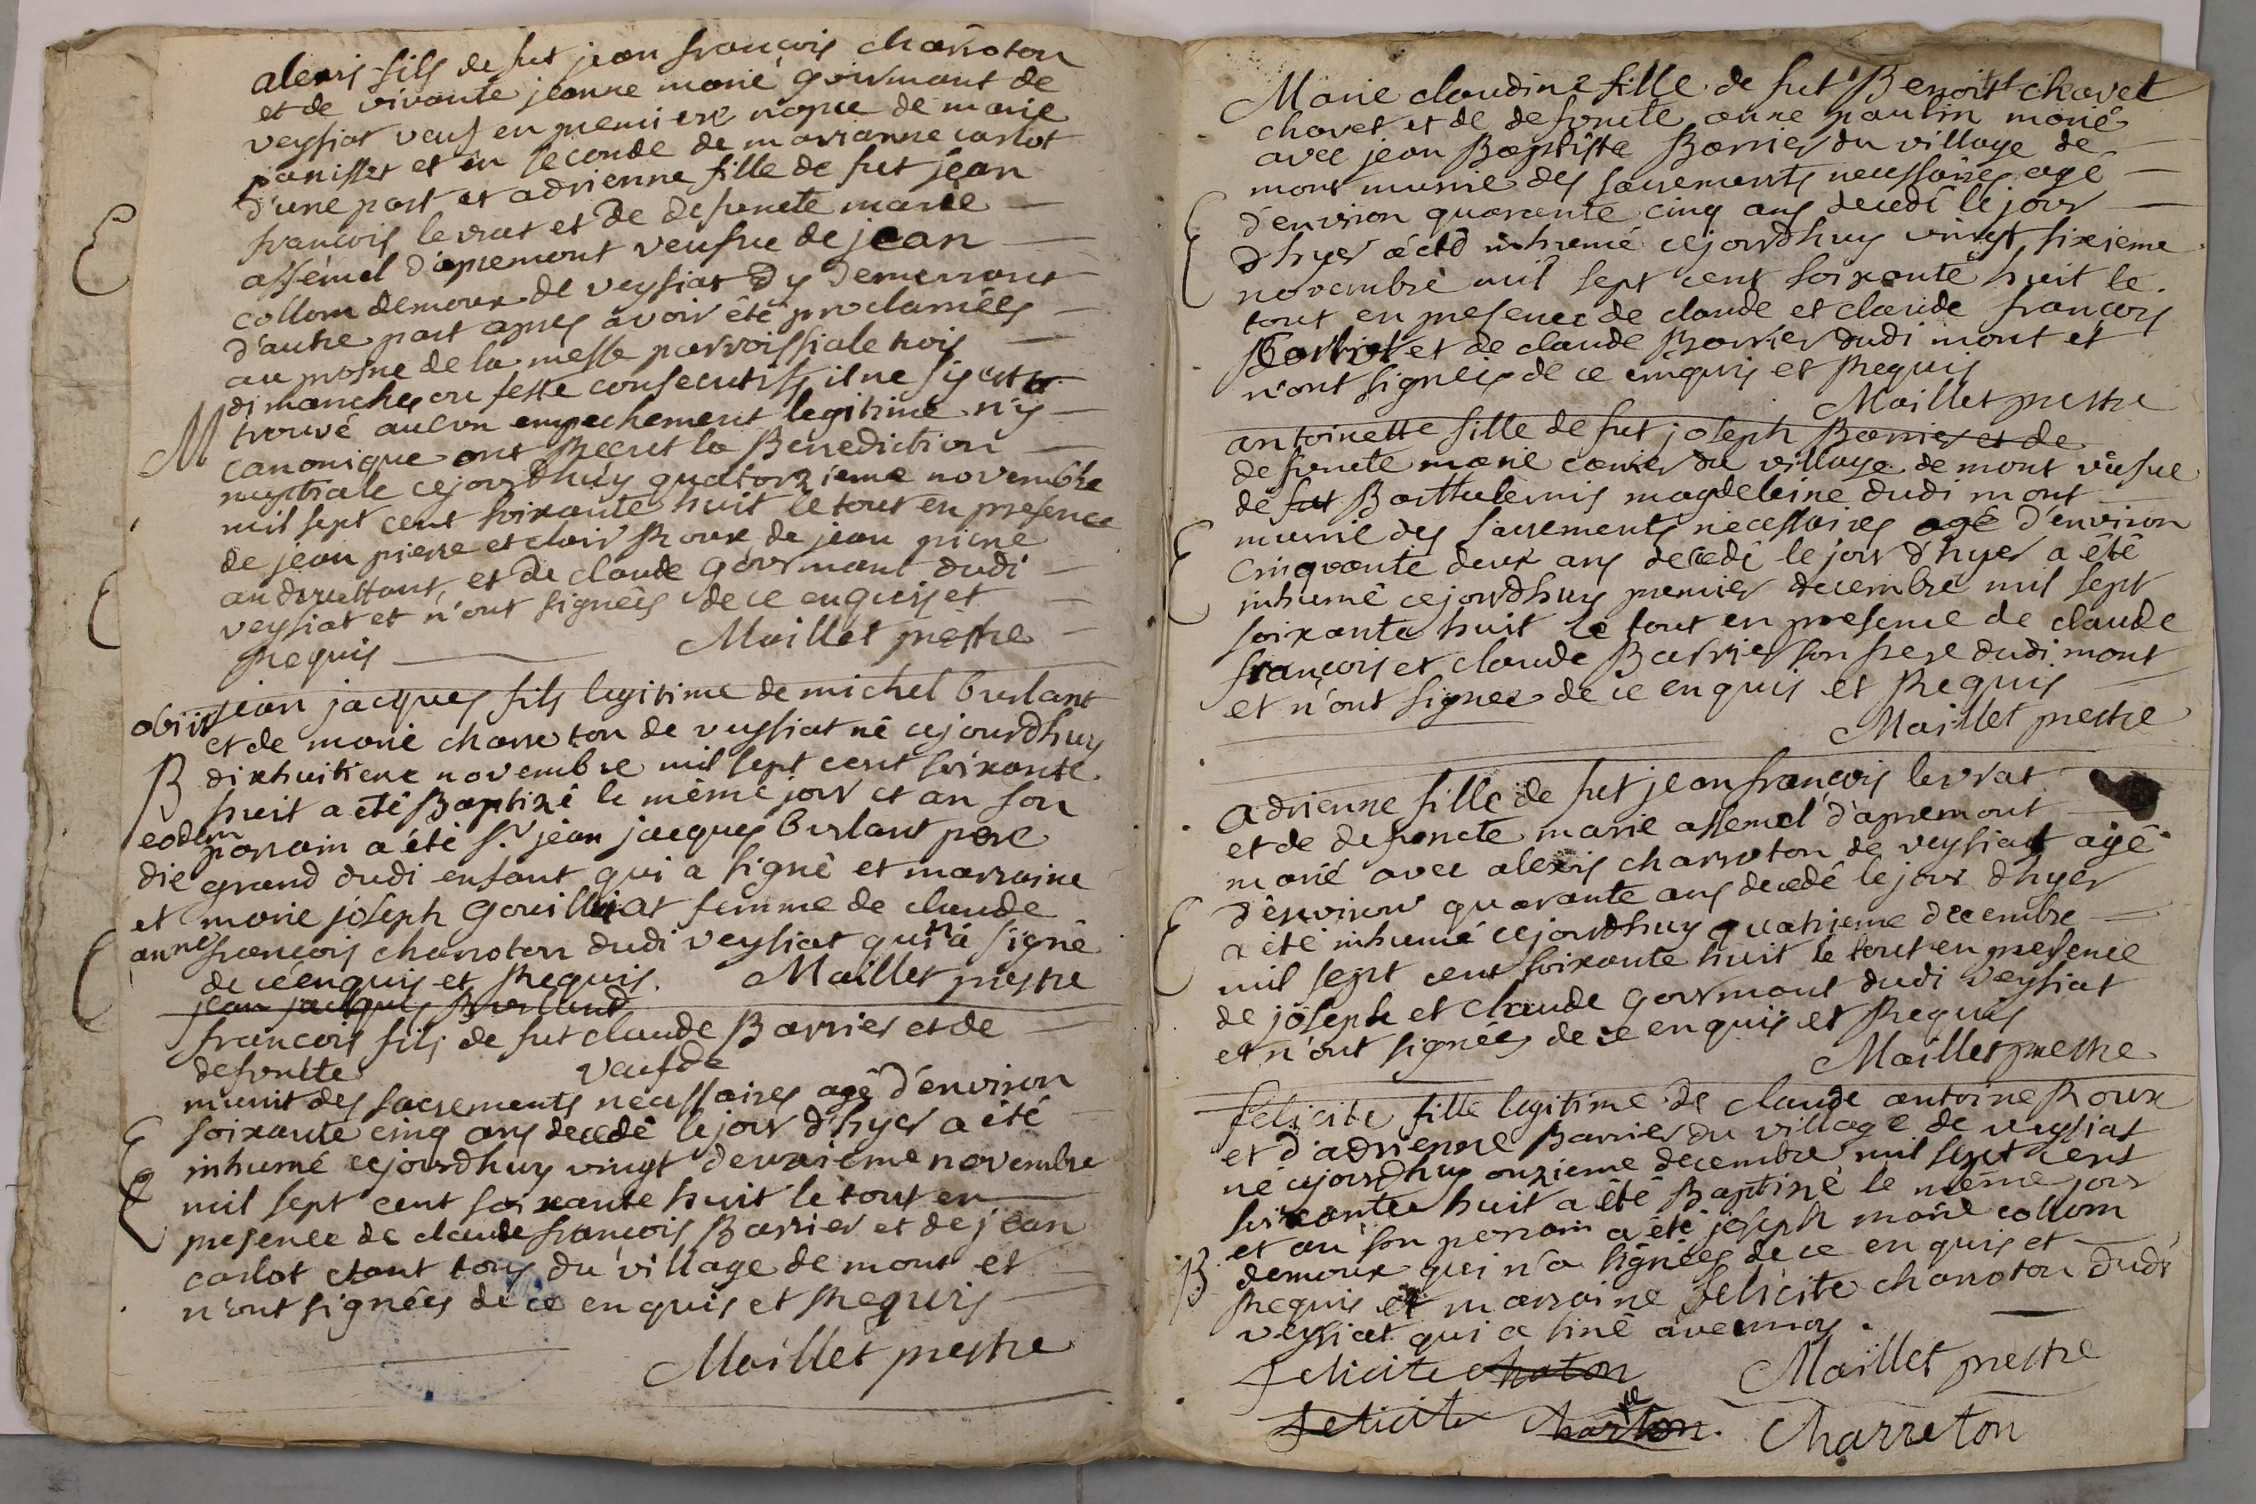 alexis fils de fut jean françois charroton
et de vivante jeanne marié gourmant de
veysiat veuf en premiere nopce de marie
panisset et en seconde de marianne carlot
d'une part et adrienne fille de fut jean
francois levrat et de defuncte marie
assemel d'apremont veufue de jean
collom demoux de veysiat dy demeurant
d'autre part apres avoir été proclamées
au prosne de la messe parroissiale trois
dimanches ou feste consecutifs il ne s'y est
M trouvé aucun empechement legitimé n'y
canonique ont Receut la Benediction
nuptiale cejourdhuy quatorzieme novembre
mil sept cent soixante huit le tout en presence
de jean pierre et clair Roux de jean pierre
et de claude gourmant dudi
veysiat et n'ont signées de ce enquis et
Requis Maillet prestre
obiit jean jacques fils legitime de michel burlant
et de marie charreton de veysiat né cejourdhuy
B dixhuitieme novembre mil sept cent soixante
huit a été Baptizé le même jour et an son
eodem parrain a été Sr jean jacques burlant pere
die grand dudi enfant qui a signé et marraine
et marie joseph Gouilliat femme de claude
anno françois charroton dudi veysiat qui n'a signé
de ce enquis et Requis. Maillet prestre
jean jacques Burland
francois fils de fut claude Barrier et de
defuncte veuf de
munit des sacrements nécessaires agé d'environ
soixante cinq ans decedé le jour d'hyer a été
inhumé cejourdhuy vingt deuxieme novembre
mil sept cent soixante huit le tout en
presence de claude françois Barrier et de jean
carlot etant tous du village de mont et
n'ont signées de ce enquis et Requis
Maillet prestre
Marie claudine fille de fut Benoit chavet
chavet et de defuncte anne paulin marié
avec jean Baptiste Barrier du village de
mont munie des sacrements necessaires agé
d'environ quarante cinq ans decedé le jour
d'hyer a été inhumé cejourdhuy vingt sixieme
novembre mil sept cent soixante huit le
tout en presence de claude et claude françois
et de claude Barrier dudi mont et
n'ont signées de ce enquis et Requis
Maillet prestre
antoinette fille de fut joseph Barrier et de
defuncte marie carrier du village de mont veufue
de fut Barthelemis magdeleine dudi mont
munie des sacrements nécessaires agé d'environ
cinquante deux ans decedé le jour d'hyer a été
inhumé cejourdhuy premier decembre mil sept
soixante huit le tout en presence de claude
françois et claude Barrier son frere dudi mont
et n'ont signee de ce enquis et Requis
Maillet prestre
adrienne fille de fut jean françois levrat
et de defuncte marie assemel d'apremont
marié avec alexis charroton de veysiat agé
d'environ quarante ans decedé le jour d'hyer
a été inhumé cejourdhuy quatrieme decembre
mil sept cent soixante huit le tout en presence
de joseph et claude gourmont dudi veysiat
et n'ont signées de ce enquis et Requis
Maillet prestre
félicité fille legitime de claude antoine Roux
et d'adrienne Barrier du village de veysiat
né cejourdhuy onzieme decembre mil sept cent
soixante huit a été Baptizé le même jour
et an son parrain a été joseph marie collom
B demoux qui n'a signées de ce enquis et
Requis et marraine félicité charroton dudi
veysiat qui a siné avec moy.
felicite chaton Maillet prestre
felicite charton. Charreton